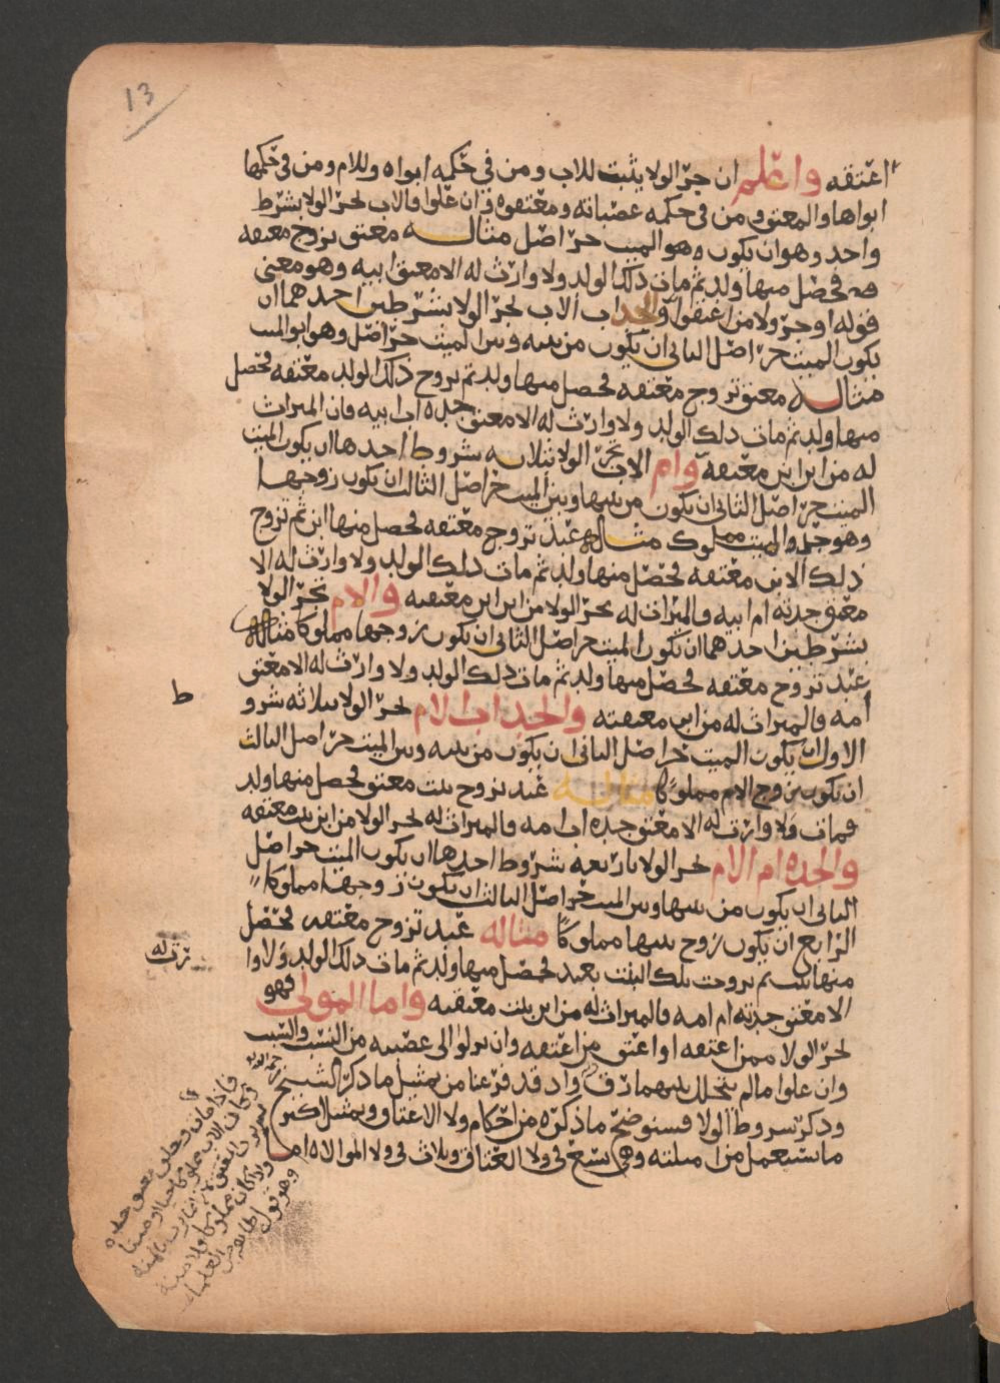 13
اعتقه واعلم ان جر الولا يثبت للاب ومن في حكمه ابواه وللام ومن في حكمها
ابواها والمعتق ومن في حكمه عصباته ومعتقوه وان علوا فالاب يجر الولا بشرط
واحد وهو ان يكون وهو الميت حر اصل مثاله معتق تزوج معتقه
فحصل منها ولد ثم مات ذلك الولد ولا وارث له الا معتق ابيه وهو معنى
قوله او جر ولا من اعتقوا والجد اب الاب يجر الولا بشرطين احدهما ان
يكون الميت حر اصل الثاني ان يكون من بينه وبين الميت حر اصل وهو ابو الميت
مثاله معتق تزوج معتقه فحصل منها ولد ثم تزوج ذلك الولد معتقه فحصل
منها ولد ثم مات ذلك الولد ولا وارث له الا معتق جده اب ابيه فان الميراث
له من ابن ابن معتقه وام الاب تجر الولا بثلاثه شروط احدها ان يكون الميت
الميت حر اصل الثاني ان يكون من بينها وبين الميت حر اصل الثالث ان يكون زوجها
وهو جد الميت مملوك مثاله عبد تزوج معتقه فحصل منها ابن ثم تزوج
ذلك الابن معتقه فحصل منها ولد ثم مات ذلك الولد ولا وارث له الا
معتق جدته ام ابيه فالميراث له بجر الولا من ابن ابن معتقته والام تجر الولا
بشرطين احدهما ان يكون الميت حر اصل الثاني ان يكون زوجها مملوكا مثاله
عبد تزوج معتقه فحصل منها ولد ثم مات ذلك الولد ولا وارث له الا معتق
امه فالميراث له من ابن معتقته والجد اب الام يجر الولا بثلاثه شرو
ط
الاول ان يكون الميت حر اصل الثاني ان يكون من بينه وبين الميت حر اصل الثالث
ان يكون زوج الام مملوكا مثاله عبد تزوج بنت معتق فحصل منها ولد
فمات ولا وارث له الا معتق جده اب امه فالميراث له بجر الولا من ابن بنت معتقه
والجده ام الام تجر الولا باربعه شروط احدها ان يكون الميت حر اصل
الثاني ان يكون من بينها وبين الميت حر اصل الثالث ان يكون زوجها مملوكا
الرابع ان يكون زوج بنتها مملوكا مثاله عبد تزوج معتقه فحصل
منها بنت ثم تزوجت تلك البنت بعبد فحصل منها ولد ثم مات ذلك الولد ولا وا
رث له
الا معتق جدته ام امه فالميراث له من ابن بنت معتقته واما المولى فهو
يجر الولا ممن اعتقه او اعتق من اعتقه وان نزلوا الى عصبته من النسب والسبب
وان علوا ما لم يتخلل بينهما رق واذ قد فرغنا من تمثيل ما ذكر الشيخ
وذكر شروط الولا فسنوضح ما ذكره من احكام ولا الاعتاق وبمثل اكثر
ما يستعمل من امثلته وهي تسع في ولا العتاق وثلاث في ولا الموالاه اما